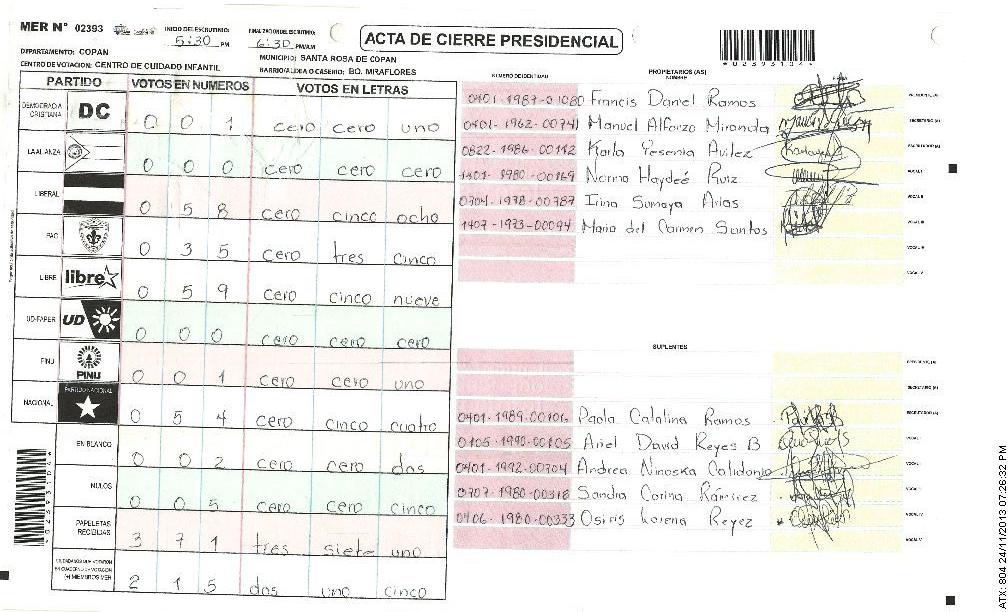 MER N° 02393
INICIO DEL ESCRUTINIO:
5:30 PM
FINALIZACION DEL ESCRUTINIO:
6:30 PM/AM
ACTA DE CIERRE PRESIDENCIAL
DEPARTAMENTO: COPAN
MUNICIPIO: SANTA ROSA DE COPAN
CENTRO DE VOTACION: CENTRO DE CUIDADO INFANTIL
BARRIO/ALDEA O CASERIO: BO. MIRAFLORES
PARTIDO VOTOS EN NUMEROS VOTOS EN LETRAS
DEMOCRACIA CRISTIANA DC 0 0 1 cero cero uno
LA ALIANZA 0 0 0 cero cero cero
LIBERAL 0 5 8 cero cinco ocho
PAC 0 3 5 cero tres cinco
LIBRE libre 0 5 9 cero cinco nueve
UD-FAPER UD 0 0 0 cero cero cero
PINU PINU 0 0 1 cero cero uno
NACIONAL PARTIDO NACIONAL 0 5 4 cero cinco cuatro
EN BLANCO 0 0 2 cero cero dos
NULOS 0 0 5 cero cero cinco
PAPELETAS RECIBIDAS 3 7 1 tres siete uno
CIUDADANOS QUE VOTARON EN CUADERNO DE VOTACION (+) MIEMBROS MER 2 1 5 dos uno cinco
NUMERO DE IDENTIDAD
PROPIETARIOS (AS)
NOMBRE
0401-1987-01080 Francis Daniel Ramos PRESIDENTE (A)
0401-1962-00741 Manuel Alfonzo Miranda SECRETARIO (A)
0822-1986-00112 Karla Yesenia Avilez ESCRUTADOR (A)
1401-1980-00169 Norma Haydeé Ruiz VOCAL I
0704-1978-00787 Irina Sumaya Arias VOCAL II
1407-1973-00094 Maria del Carmen Santos VOCAL III
VOCAL IV
VOCAL V
SUPLENTES
PRESIDENTE (A)
SECRETARIO (A)
0401-1989-00106 Paola Catalina Ramos ESCRUTADOR (A)
0105-1990-00105 Ariel David Reyes B VOCAL I
0401-1992-00704 Andrea Ninoska Calidonio
0707-1980-00318 Sandra Corina Ramírez
0406-1980-00333 Osiris Lorena Reyez VOCAL IV
VOCAL V
ATX: 804 24/11/2013 07:26:32 PM